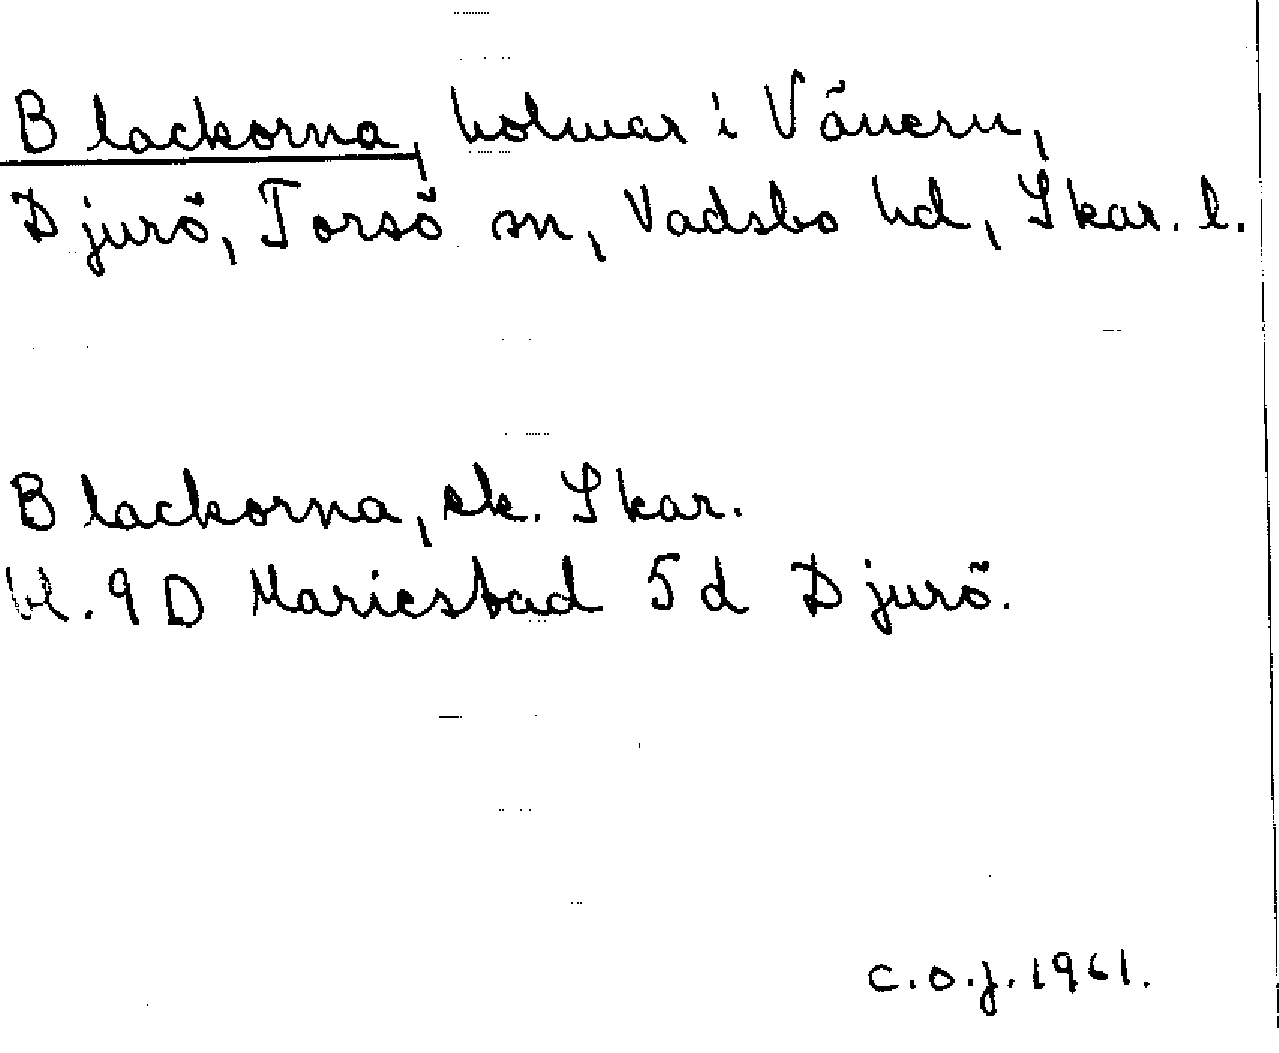 Blackorna, holmar i Vänern,
Djurö, Torsö sn, Vadsbo hd, Skar. l.
Blackorna, ek. Skar.
bl. 9D Mariestad 5d Djurö.
C.O.J. 1961.